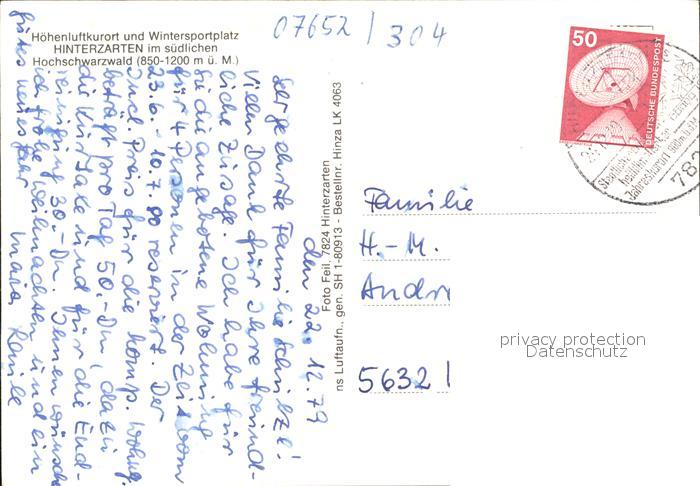 Höhenluftkurort und Wintersportplatz
HINTERZARTEN im südlichen
Hochschwarzwald (850-1200 m ü. M.)
07652 / 304
50
DEUTSCHE BUNDESPOST
78
den 22.12.79
Sehr geehrte Familie Schulze!
Vielen Dank für Ihre freund-
liche Zusage. Ich habe für
Sie die angebotene Wohnung
für 4 Personen in der Zeit vom
23.6. - 10.7.80 reserviert. Der
Incl. Preis für die komp. Wohng.
beträgt pro Tag 50.- DM, dazu
die Kurtaxe und für die End-
reinigung 30.- DM. Ihnen wünsche
ich frohe Weihnachten und ein
gutes neues Jahr
Maria
Foto Feil, 7824 Hinterzarten
ns Luftaufn., gen. SH 1-80913 - Bestellnr. Hinza LK 4063
Familie
H.-M.
Andr
5632
privacy protection
Datenschutz